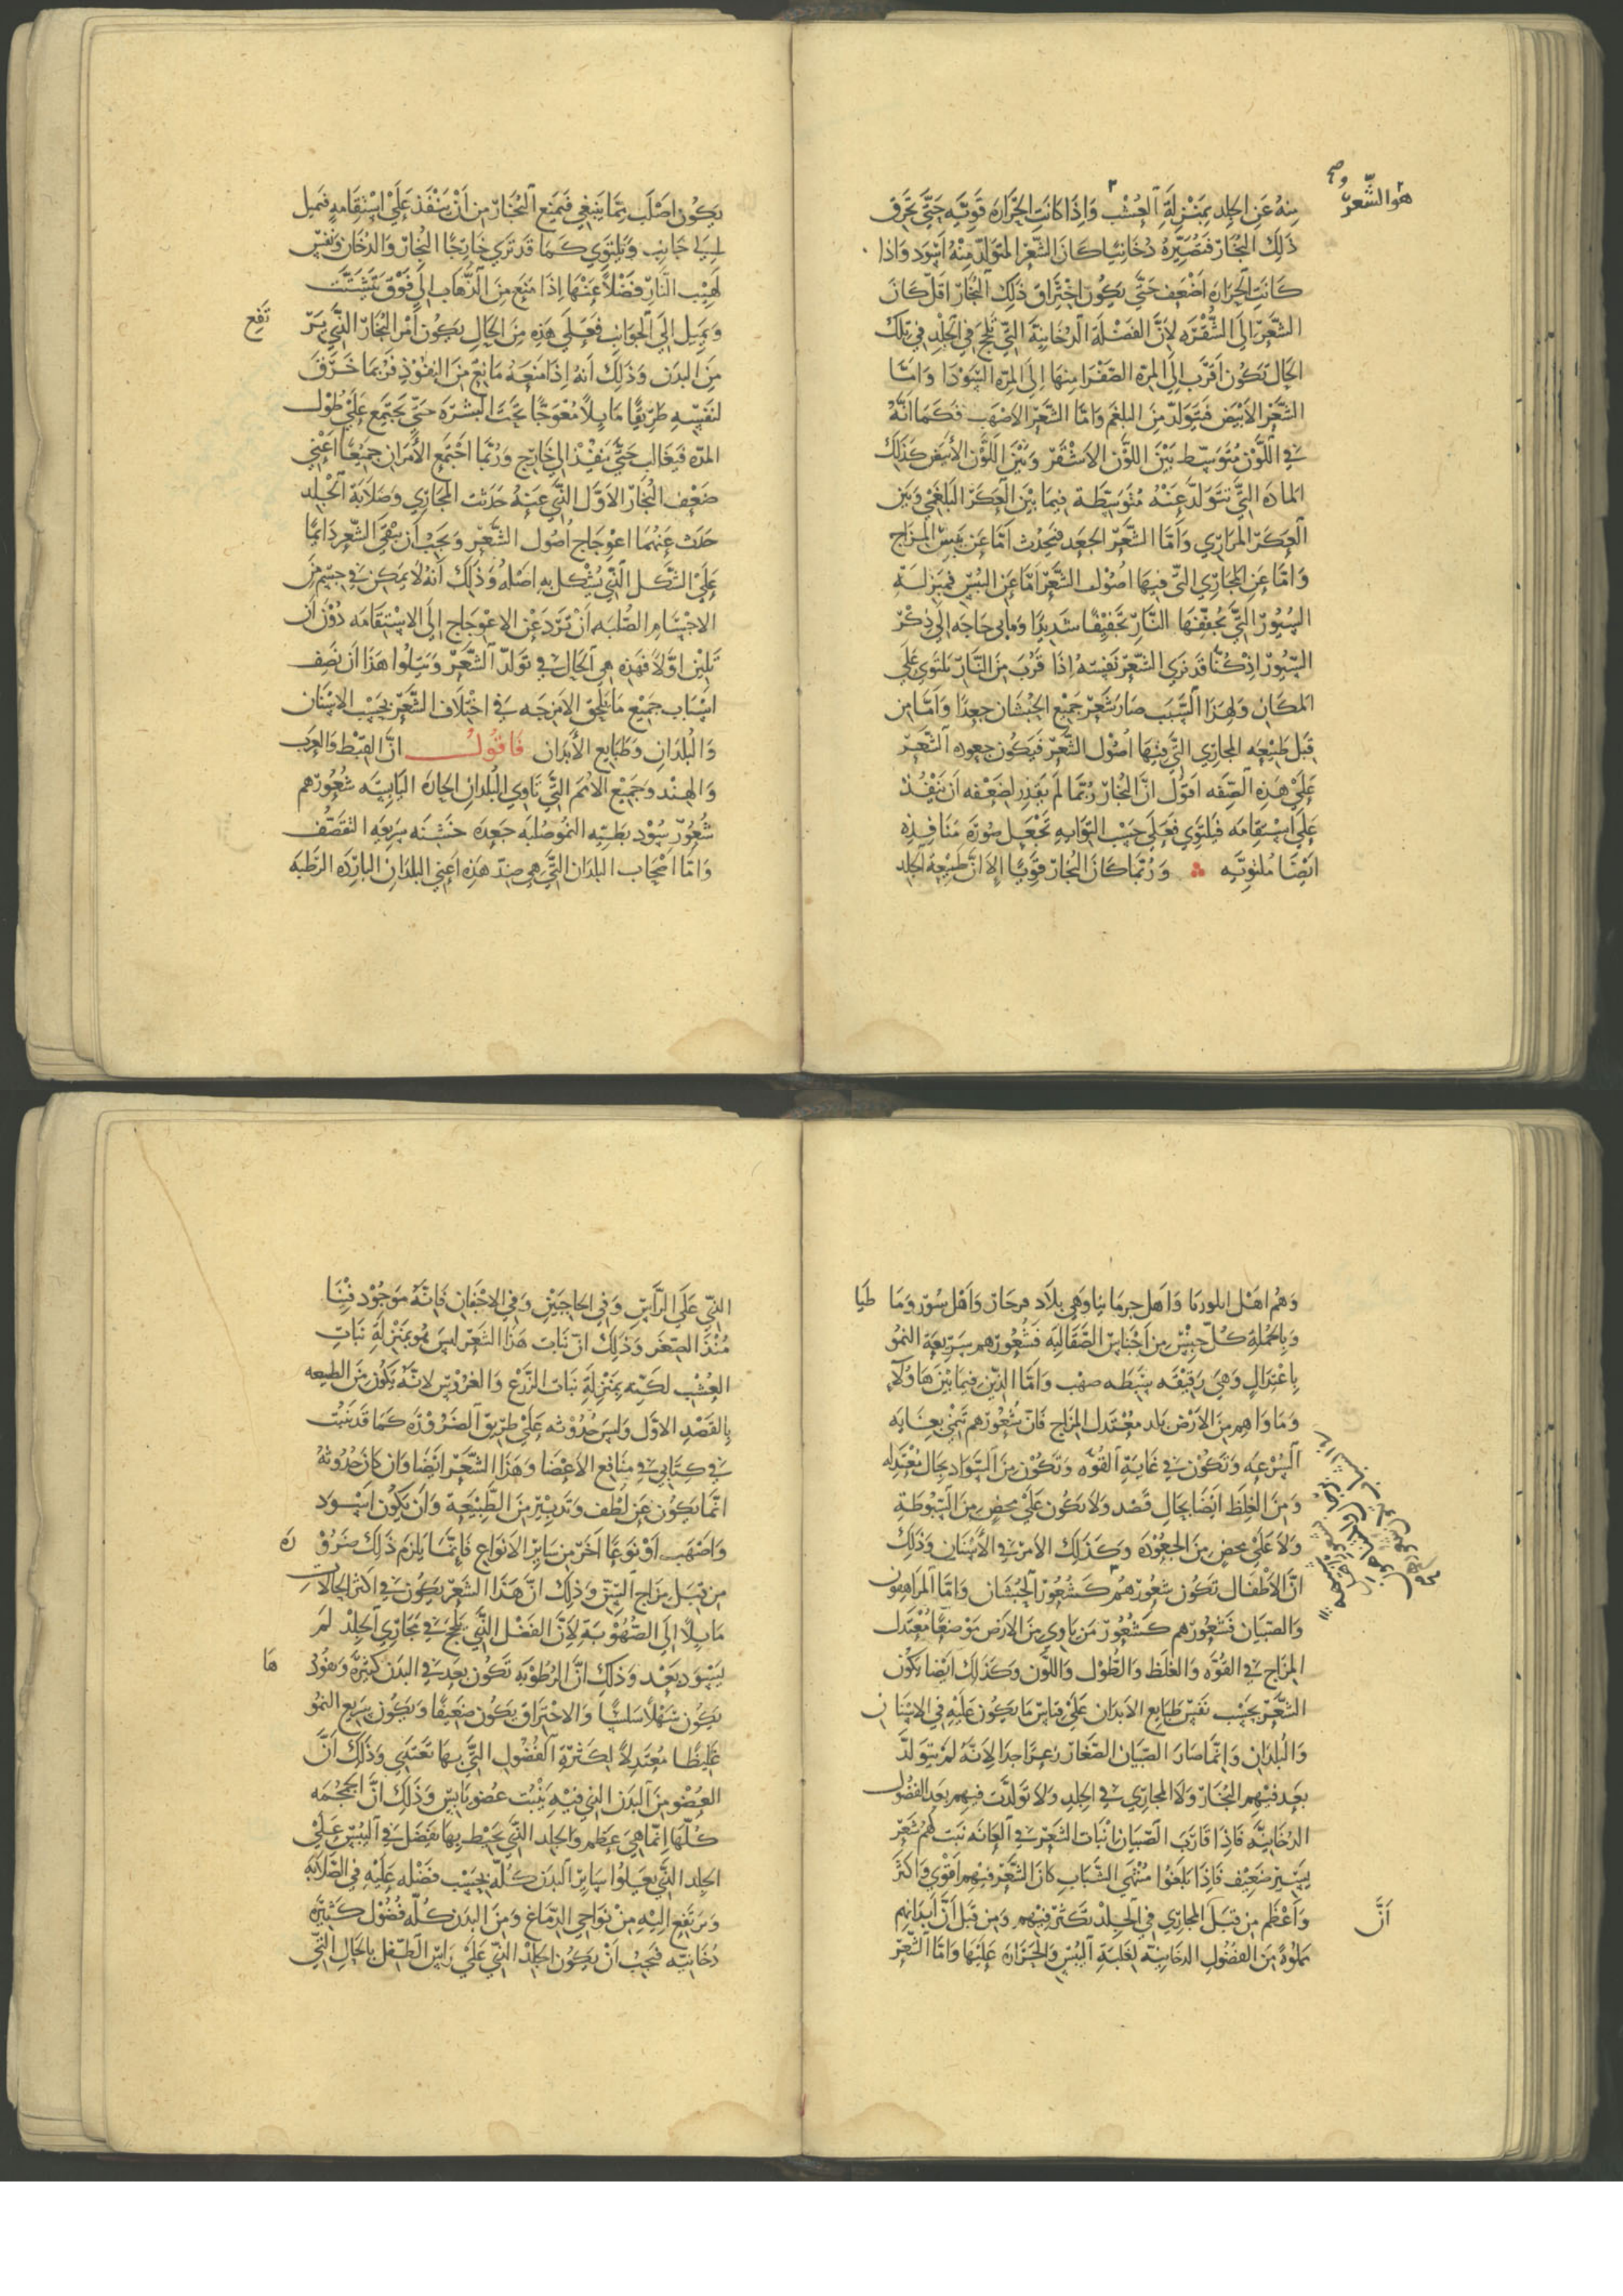 هو الشعر صح
منه عن الجلد بمنزلة العشب وَاِذَا كانت الحَرَارة قويّه حَتّى تحرق
ذلك البُخَار فتصيّره دُخَانيًا كان الشّعر المتولّد منه اَسْوَد وَاذا
كانت الحرارة اضعَف حَتّى يكون احتراق ذلك البُخار اقل كان
الشَّعر الى الشُّقْرَه لِاَنَّ الفَضْلَة الدخانية التي تلحج في الجِلْد في تلك
الحال تكون اقرَب الى المِرّه الصّفْرَا منها الى المِرّه السّوْدَا وَامّا
الشّعر الاَبْيَض فَيتولّد من البلغم وَامّا الشّعر الاَصْهَب فكما انّه
في اللّوْن مُتَوسّط بَيْن اللّوْن الاشقر وَبَيْن اللّوْن الاَبيض كذلك
المادَه التي تتولّد عنه متوسّطة فيما بين العَكر البَلغَمي وَبَين
العَكر المراري وَامّا الشّعر الجَعد فيحدث امّا عن يبس المزاج
وَامّا عن المجَاري التي فيها اصُوْل الشّعر امّا عن اليُبْس فبمنزلة
السُيُور التي تجففها النّار تجفيفًا شديدًا وَمابي حاجَه الى ذكر
السّيُور اذ كُنّا قد نرى الشّعر نفسه اذا قرُبَ من النّار يلتَوي على
المكان وَلهذا السّبَب صَارَ شعر جَميْع الحُبْشَان جعدًا وَامّا من
قبل طَبيْعه المجاري التي فيها اُصُوْل الشّعر فيكون جعوده الشّعر
عَلى هَذه الصّفه اقوْل انّ البُخَار رُبّما لم يقدر لِضَعْفه اَن يَنْفُذ
على استقامه فيلتَوي فعَلى حسَب التوايه تجعَل صُوْرَة منافذه
ايْضًا مُلتويَه وَرُبّما كان البُخَار قَويًا الا انّ طبيْعه الجلد
يكون اصْلَب ممّا ينبَغي فيمنع البُخَار من اَنْ ينفذ عَلَى اسْتقَامه فيميل
الى جانب وَيلتَوي كما قد ترى خارجًا البُخار وَالدُخَان وَنفس
لَهيْب النّار فضلًا عنها اذا منع من الذّهَاب الى فَوْق يتشتّت
وَيميل الى الجوانب فعَلى هَذه من الحال يكون اَمْر البُخَار الذي يَرْ
تَفع
من البَدَن وَذَلك انهُ اذا منَعَهُ مَانعٌ من النفوذ فرُبما خَرّق
لنفسه طريقًا مايلًا مُعْوَجًا تحتَ البشرَه حَتّى يجتمع على طُوْل
المدّه فيغالب حَتّى ينفُذْ الى خارج وَرُبّما اجْتمع الاَمْرَان جميعًا اعني
ضَعْف البُخار الاَوّل الذي عَنهُ حَدَثت المجَاري وَصَلَابَة الجلد
حَدَث عَنهُمَا اعْوِجَاج اُصُول الشّعْر وَيَجب اَن يبقَى الشّعر دَائمًا
على الشَّكل الّذي يُشْكل به اصْلهُ وَذَلك اَنّهُ لَا يمكن في جسْم من
الاجسَام الصُلبَه اَن ترَد عَن الاعوجَاج الى الاسْتقَامَه دُوْن اَن
تَلين اوّلًا فهَذه هي الحَال في تولّد الشّعْر وَيَتلوا هَذَا اَن نَصِف
اسْبَاب جَميْع مَا يلحق الاَمزجَه في اختلَاف الشّعْر بحسَب الاسْنَان
وَالبُلدَان وَطبَايع الاَبْدَان فَاقُوْلُ انّ القبْط وَالعرَب
وَالهند وَجَميْع الاُمَم التي تَاوي البُلدان الحارَه اليَابسَه شُعُوْرهم
شُعُوْر سُوْد بَطيه النمو صُلبَه جَعدَه خَشنَه سَريعَه التقصّف
وَامّا اصْحَاب البلدان التي هي ضدّ هَذه اعني البلدان البَاردَه الرّطبَه
وَهُم اهْل ايلوريَا وَاهل جرمانيا وَهي بلَاد مرحان وَاهْل سُور وَمَا
طيَا
وَبالجملة كُلّ جنْس من اجْنَاس الصّقالبَه فشُعُوْرهم سَريْعَة النموّ
باعْتدَال وَهيَ رَقيْقَه سَبطَه صهْب وَامّا الذين فيمَا بَيْن هَاوُلَآءِ
وَمَاوَاهم من الاَرْض بَلد مُعْتَدل المزاج فَانّ شُعُوْرهم تنمي بغَايَه
السُرعَه وَتكوْن في غايَة القُوّه وَتَكُوْن منَ السّوَاد بحَال مُعْتَدله
وَمنَ الغِلَظ ايضًا بحَال قَصْد وَلَا يَكُون عَلَى محْض منَ السّبُوطَة
وَلَا عَلَى محض منَ الجعُوْدَه وَكذَلك الاَمْر في الاَسْنَان وَذَلك
انّ الاَطْفَال تكُوْن شُعُوْرهُمْ كَشُعُوْر الحُبْشَان وَامّا المراهِقون
وَالصّبيَان فشُعُوْرهم كَشُعُوْر مَن يَاوي منَ الاَرْض مَوْضعًا مُعْتَدل
المزَاج في القُوّه وَالغلظ وَالطُوْل وَاللّوْن وَكَذَلك ايْضًا يكُوْن
الشّعْر بحسَب نفس طَبَايع الاَبدَان عَلَى قياس مَا يكُون عَلَيْه في الاسْنَان
وَالبُلْدَان وَانّما صَارَ الصّبيَان الصّغار زعرًا جدا لاَنّه لم يتولّد
بَعد فيْهم البُخَار وَلَا المجَاري في الجلد وَلَا تَولّدَت فيهم بَعد الفضول
الدُخَانيّه فَاذَا قَارَبَ الصّبيَان اِنْبَات الشّعْر في العَانَه نَبَت لهُم شَعْر
يَسيْر ضعيْف فَاذَا بَلَغُوا مُنْتهَى الشّبَاب كَانَ الشّعْر فيهم اَقوَى وَاَكثَر
وَاعْظم من قبَل المجَاري في الجلْد تكثر فيْهم وَمن قبَل اَنَّ اَبْدَانهم
اَنَّ
مملوءةٌ من الفضُوْل الدخانيّه لغَلبَة اليُبْس وَالحَرَارَه عَلَيْهَا وَامّا الشّعر
الذي عَلَى الرّأس وَفي الحَاجبَيْن وَفي الاجْفان فَانّه مَوْجُوْد فيْنَا
مُنْذ الصّغَر وَذَلك انّ نَبَات هَذَا الشّعر ليسَ هُو بمَنزلَة نَبَات
العُشْب لكنّه بمَنزلَة نَبَات الزّرْع وَالغرُوْس لانّه يكُوْن منَ الطبيعه
بالقَصْد الاَوّل وَليسَ حُدُوْثه عَلَى طَريْق الضّرُوْرَه كَمَا قَد بيّنت
في كتَابي في منَافع الاَعضَا وَهَذَا الشّعْر ايْضًا وَان كَانَ حُدُوثهُ
انّمَا يكُون عَن لطْف وَتَدبيْر منَ الطّبيْعَة وَاَن يَكُوْن اَسْوَد
وَاصْهَب اَوْ نَوْعًا اخَر من سَاير الاَنوَاع فَانّمَا يلزم ذَلك ضَرُوْ
رَة
من قبَل مزَاج السّنّ وَذَلك انّ هَذَا الشّعر يكُوْن في اكثَر الحَالَات
مَايلًا الى الصُّهُوْبَة لاَنّ الفَضْل الذي يَلحج في مجَاري الجلْد لم
يَسوَد بَعْد وَذلك انّ الرُطُوْبَه تكُوْن بَعد في البَدَن كثيْرَة وَنفوْذ
هَا
يَكُون سَهْلًا سَلسًا وَالاحْتراق يكُون ضعيفًا وَيَكُون سَريع النموّ
غَليْظًا مُعْتدلًا لكثْرَة الفضُول التي بهَا تَغتَذي وَذَلك اَنَّ
العُضْو منَ البَدَن الذي فيْه يَنْبُت عُضو يَابِس وَذَلكَ انّ الجمجمَه
كُلّهَا انّمَا هيَ عَظم وَالجلد الذي يحيْط بهَا يَفضل في اليُبْس عَلَى
الجلد الذي يَعلُوا سَاير البَدَن كُلّه بحَسَب فَضْله عَلَيْه في الصّلَابَه
وَيَرتفع اليْه منْ نوَاحي الدّمَاغ وَمنَ البَدَن كُلّه فُضُوْل كَثيْرَه
دُخَانيّه فيجبُ اَنْ يكُوْن الجلْد الذي عَلَى رَاس الطّفل بالحَال التي